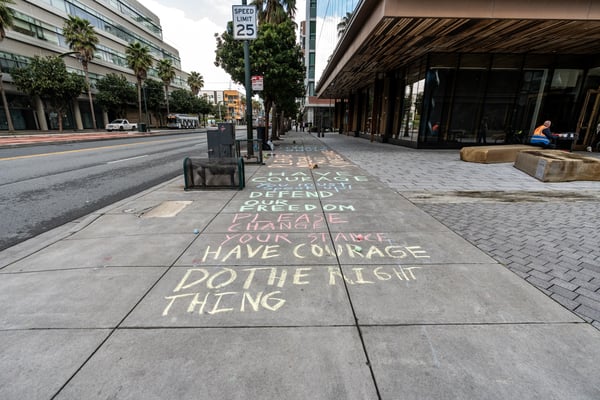 SPEED
LIMIT
25
HAVE
COURAGE
DEFEND
OUR
FREEDOM
PLEASE
CHANGE
YOUR STANCE
HAVE COURAGE
DO THE RIGHT
THING